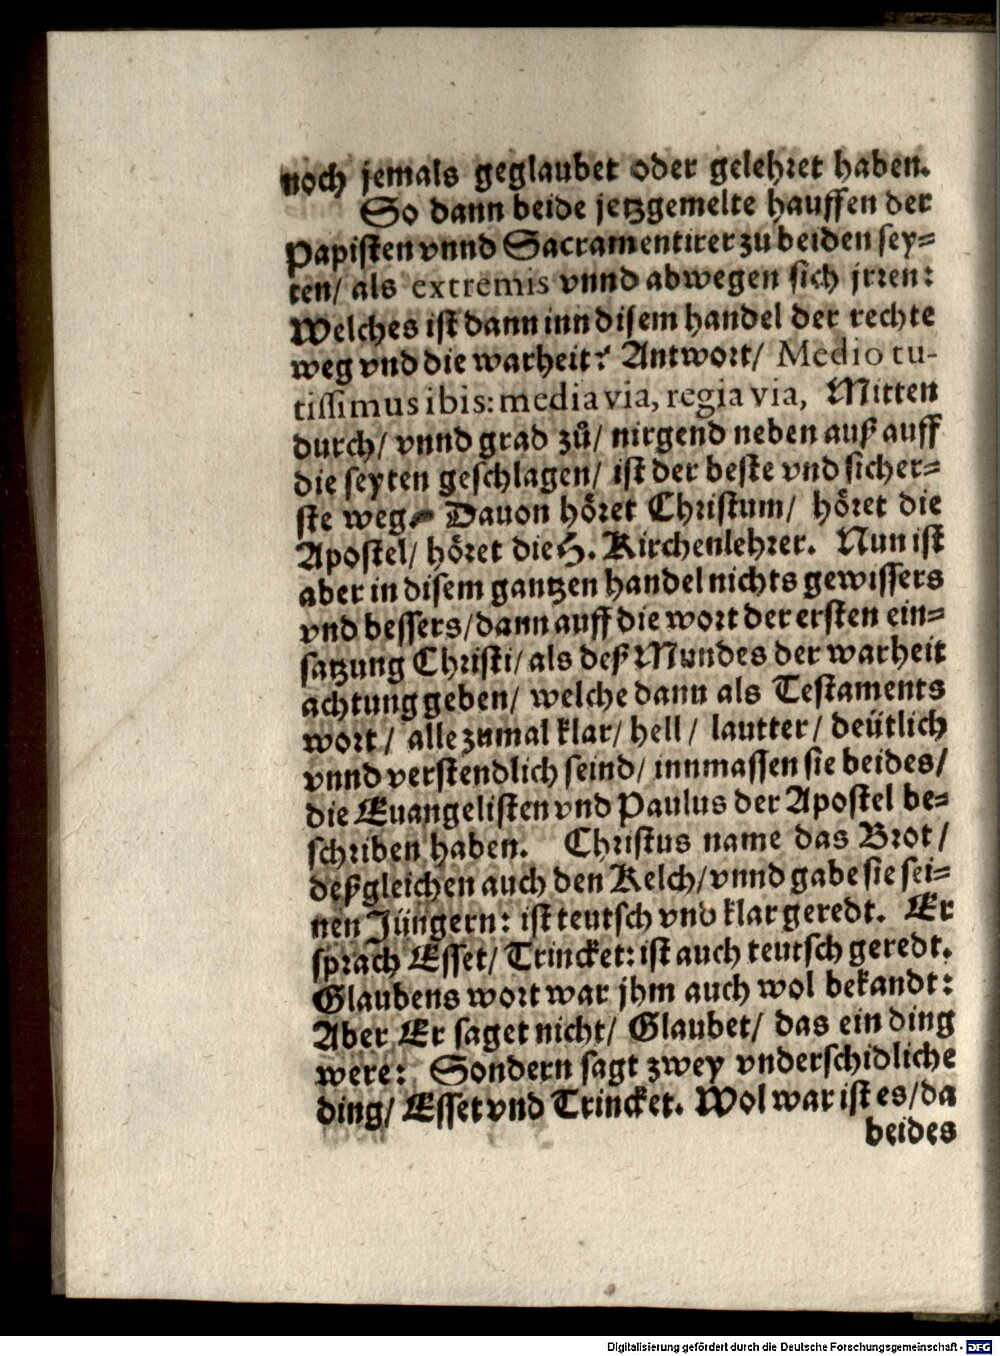 noch jemals geglaubet oder gelehret haben.
So dann beide jetzgemelte hauffen der
Papisten vnnd Sacramentirer zu beiden sey=
ten/ als extremis vnnd abwegen sich jrren:
Welches ist dann inn disem handel der rechte
weg vnd die warheit? Antwort/ Medio tu-
tissimus ibis: media via, regia via, Mitten
durch/ vnnd grad zů/ nirgend neben auß auff
die seyten geschlagen/ ist der beste vnd sicher=
ste weg. Dauon höret Christum/ höret die
Apostel/ höret die H. Kirchenlehrer. Nun ist
aber in disem gantzen handel nichts gewissers
vnd bessers/ dann auff die wort der ersten ein=
satzung Christi/ als deß Mundes der warheit
achtung geben/ welche dann als Testaments
wort/ alle zumal klar/ hell/ lautter/ deütlich
vnnd verstendlich seind/ innmassen sie beides/
die Euangelisten vnd Paulus der Apostel be=
schriben haben. Christus name das Brot/
deßgleichen auch den Kelch/ vnnd gabe sie sei=
nen Jüngern: ist teutsch vnd klar geredt. Er
sprach Esset/ Trincket: ist auch teutsch geredt.
Glaubens wort war jhm auch wol bekandt:
Aber Er saget nicht/ Glaubet/ das ein ding
were: Sondern sagt zwey vnderschidliche
ding/ Esset vnd Trincket. Wol war ist es/ da
beides
Digitalisierung gefördert durch die Deutsche Forschungsgemeinschaft - DFG